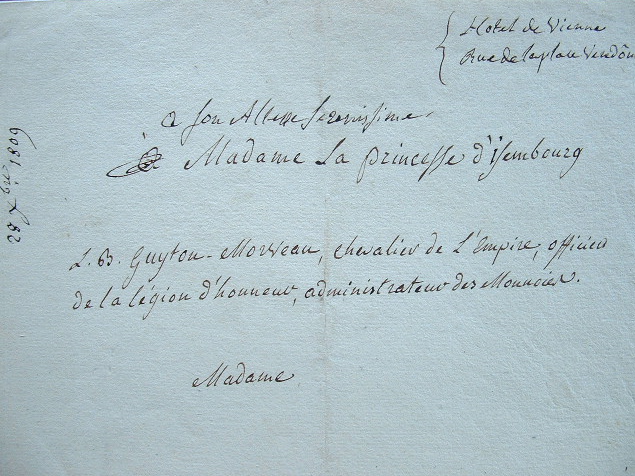 Hotel de Vienne
Rue de la place Vendôm
a son Altesse serenissime
à Madame La princesse d'isembourg
28 Xbre 1809
L. B. Guyton-Morveau, chevalier de L'Empire, officier
de la légion d'honneur, administrateur des Monnoies.
Madame